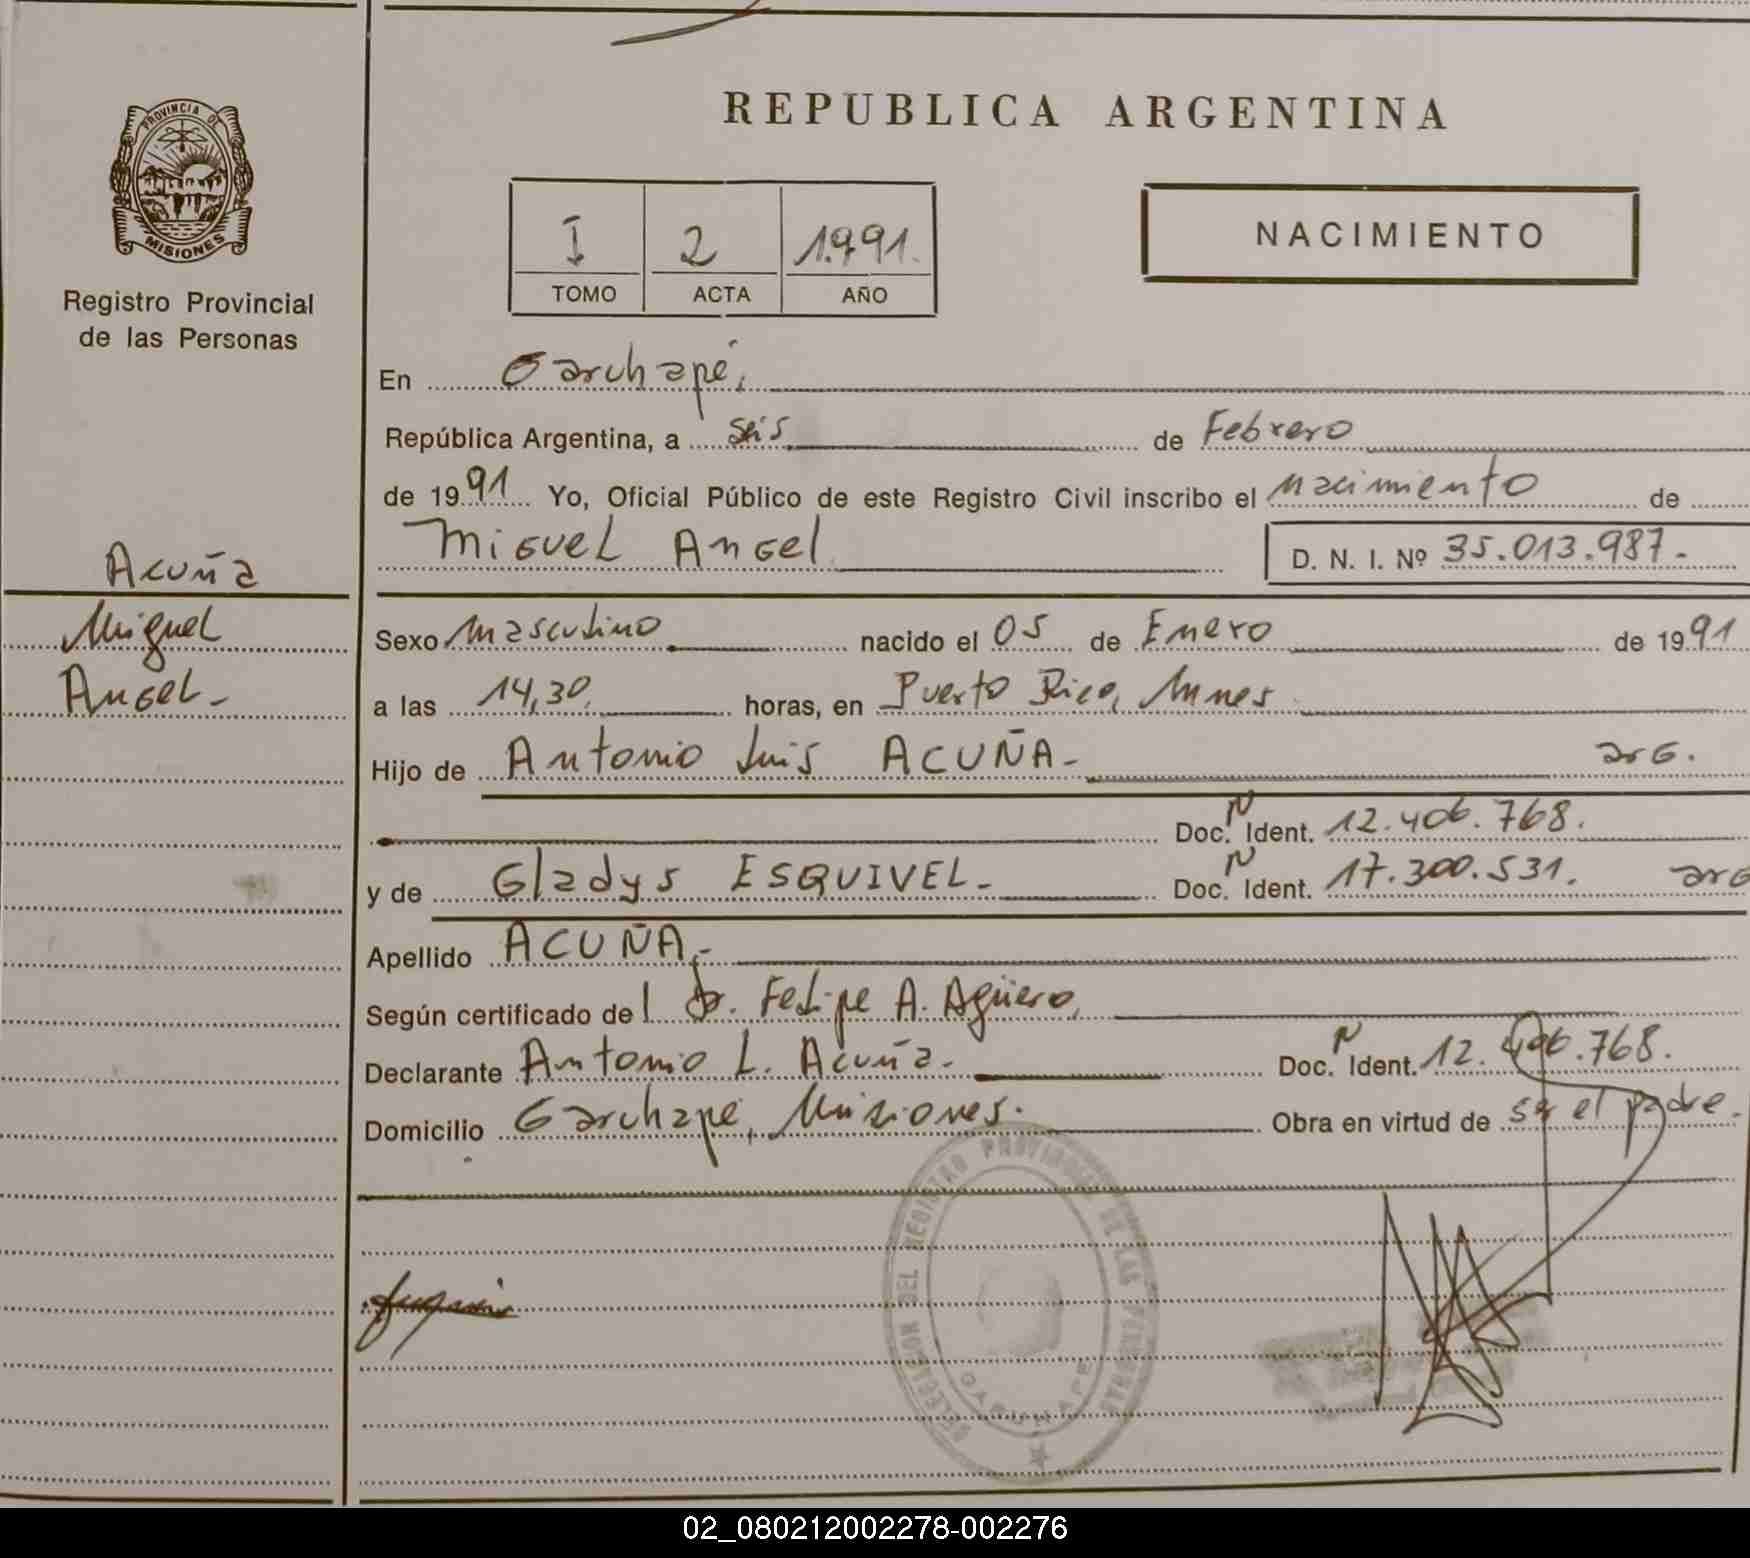 REPUBLICA ARGENTINA
PROVINCIA DE
MISIONES
Registro Provincial
de las Personas
I 2 1.991.
TOMO ACTA AÑO
NACIMIENTO
En Garuhapé,
República Argentina, a seis de Febrero
de 1991 Yo, Oficial Público de este Registro Civil inscribo el nacimiento de
Miguel Angel D. N. I. Nº 35.013.987.-
Acuña
Miguel
Angel-
Sexo Masculino nacido el 05 de Enero de 1991
a las 14,30, horas, en Puerto Rico, Mnes
Hijo de Antonio Luis ACUÑA- arg.
Doc. N Ident. 12.406.768.
y de Gladys ESQUIVEL- Doc. N Ident. 17.300.531. arg
Apellido ACUÑA,-
Según certificado del Dr. Felipe A. Agüero,
Declarante Antonio L. Acuña- Doc. N Ident. 12.406.768.
Domicilio Garuhapé, Misiones. Obra en virtud de ser el padre.
DELEGACION DEL REGISTRO PROVINCIAL DE LAS PERSONAS
GARUHAPE
02_080212002278-002276